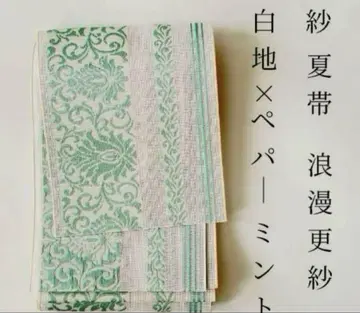 紗 夏帯 浪漫更紗
白地×ペパーミント